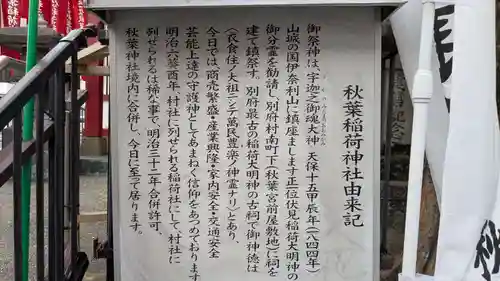 秋葉稲荷神社由来記
御祭神は、宇迦之御魂大神 天保十五甲辰年(一八四四年)
山城の国伊奈利山に鎮座まします正一位伏見稲荷大明神の
御分霊を勧請し、別府村南町下(秋葉宮前屋敷地)に祠を
建て鎮祭す。別府最古の稲荷大明神の古祠で御神徳は
(衣食住ノ大祖ニシテ萬民豊楽ノ神霊ナリ)とあり、
今日では、商売繁盛・産業興隆・家内安全・交通安全
芸能上達の守護神としてあまねく信仰をあつめております
明治六癸酉年、村社に列せられる稲荷社にして、村社に
列せられるは稀な事で、明治三十二年合併許可、
秋葉神社境内に合併し、今日に至って居ります。